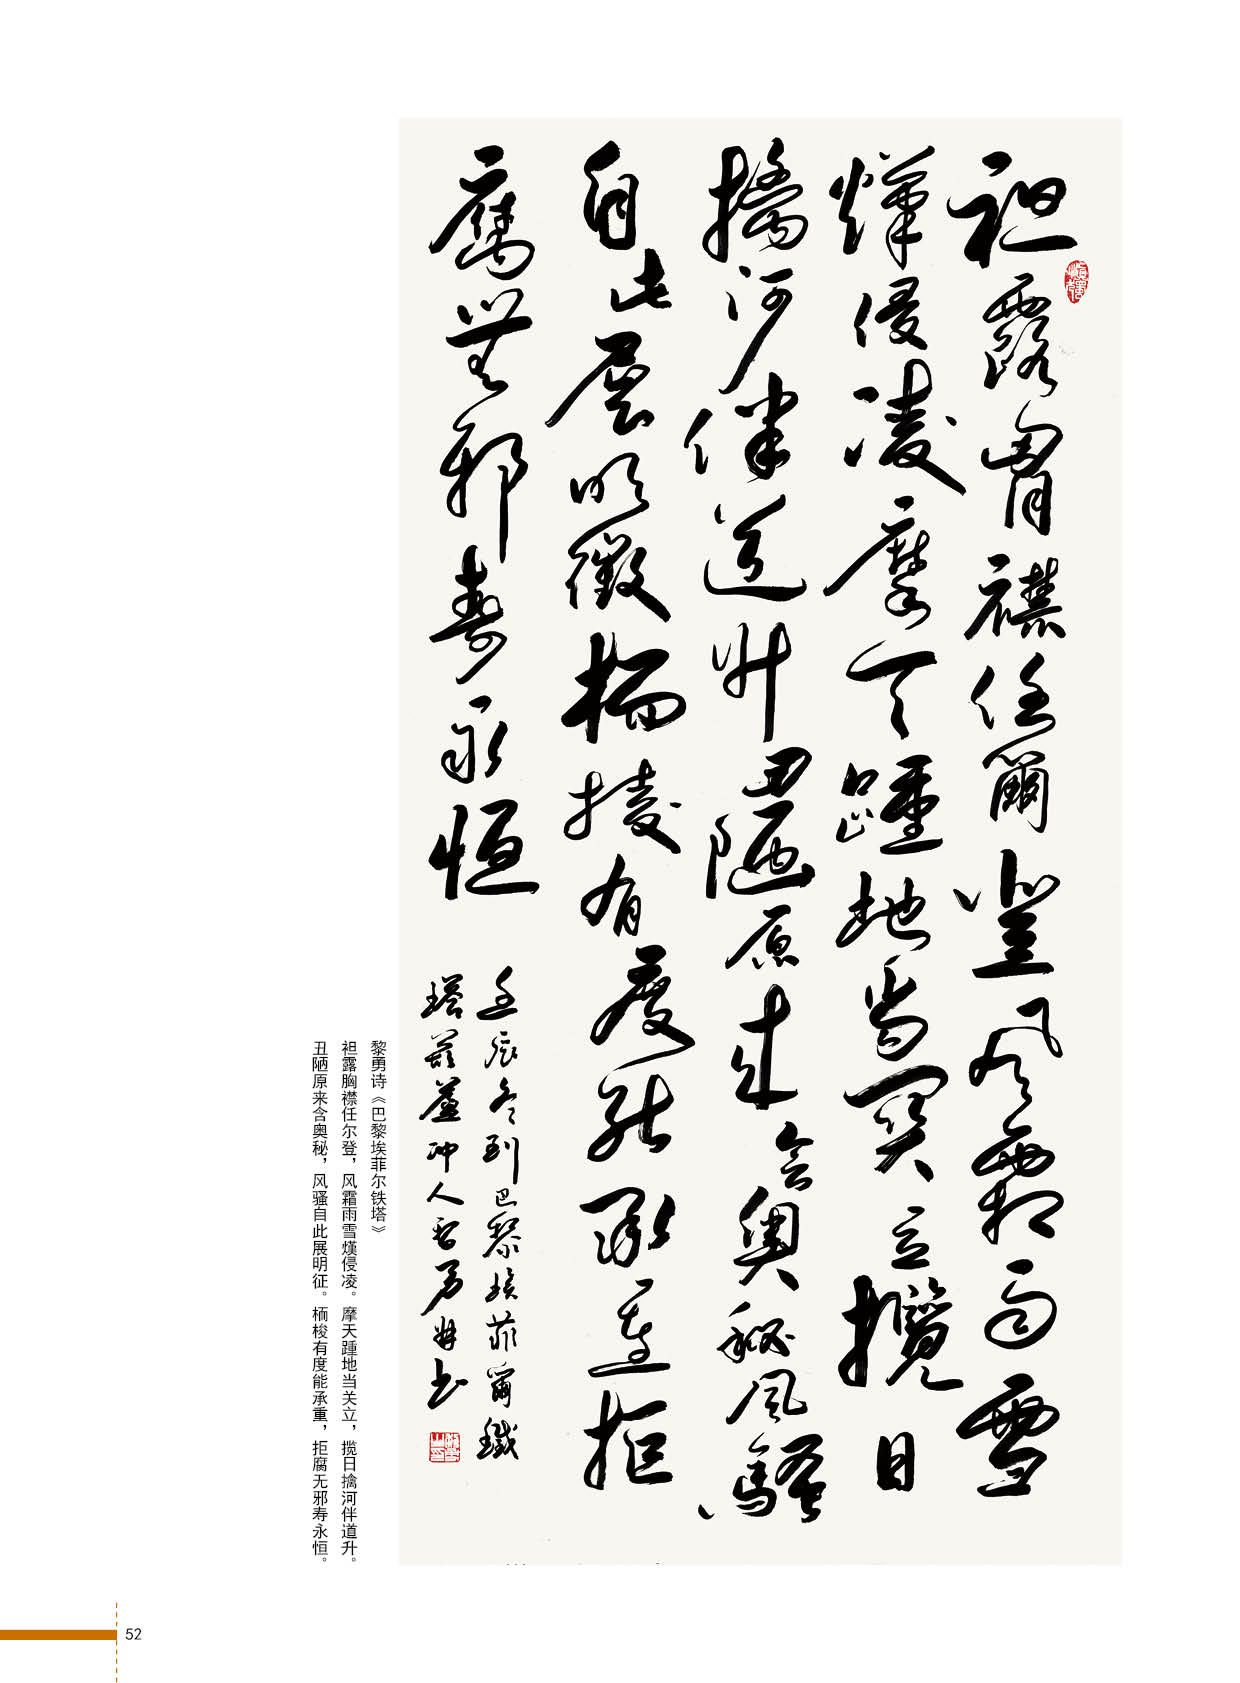 袒露胸襟任爾登風霜雨雪
熯侵凌摩天踵地當關立攬日
擒河伴道升丑陋原来含奥秘風騷
自此展明徵柄梭有度能承重拒
腐無邪壽永恒
壬辰冬到巴黎埃菲爾鐵
塔
黎勇诗《巴黎埃菲尔铁塔》
袒露胸襟任尔登，风霜雨雪熯侵凌。摩天踵地当关立，揽日擒河伴道升。
丑陋原来含奥秘，风骚自此展明征。栭梭有度能承重，拒腐无邪寿永恒。
52